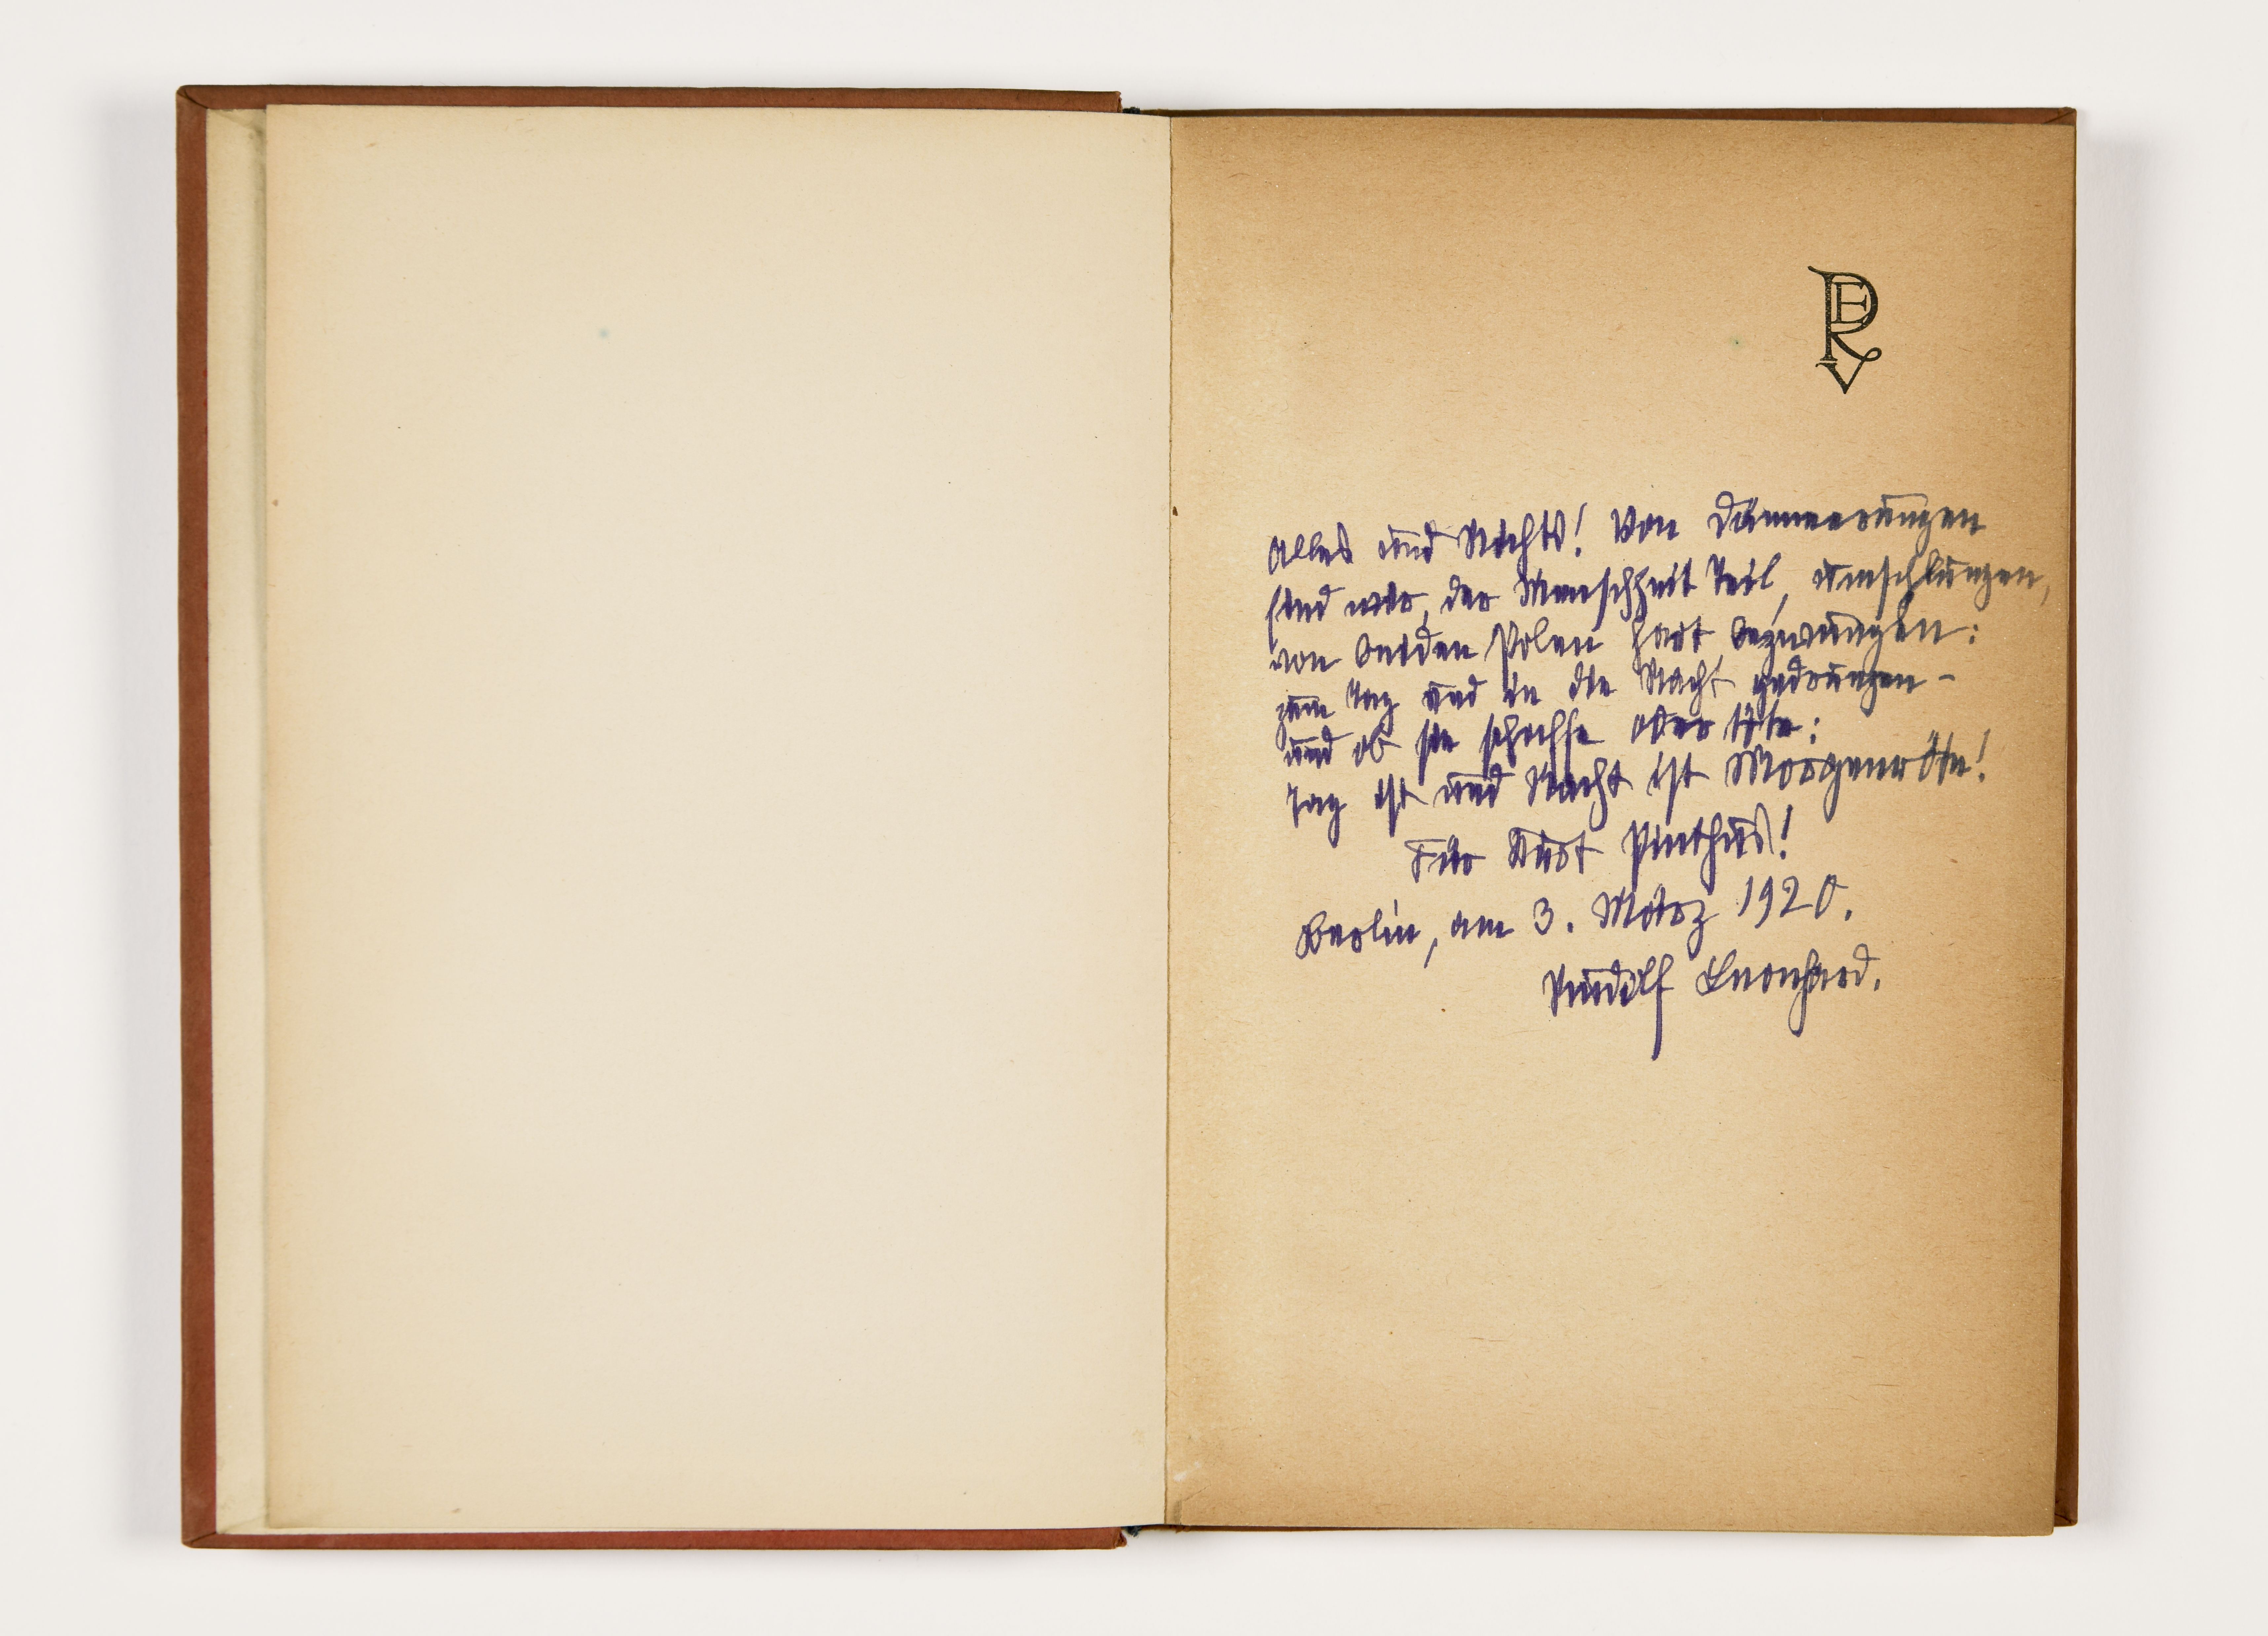 ERV
Alles und Nichts! Von Dämmerungen
sind wir, der Menschheit Teil, umschlungen,
von beiden Polen hart bezwungen:
zum Tag und in die Nacht gedrungen –
und ob sie schaffe oder töte:
Tag ist und Nacht ist Morgenröte!
Für Kurt Pinthus!
Berlin, am 3. März 1920.
Rudolf Leonhard.